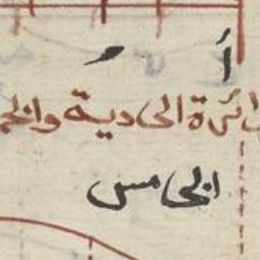 أ
ائرة الحادية والخم
الخامس